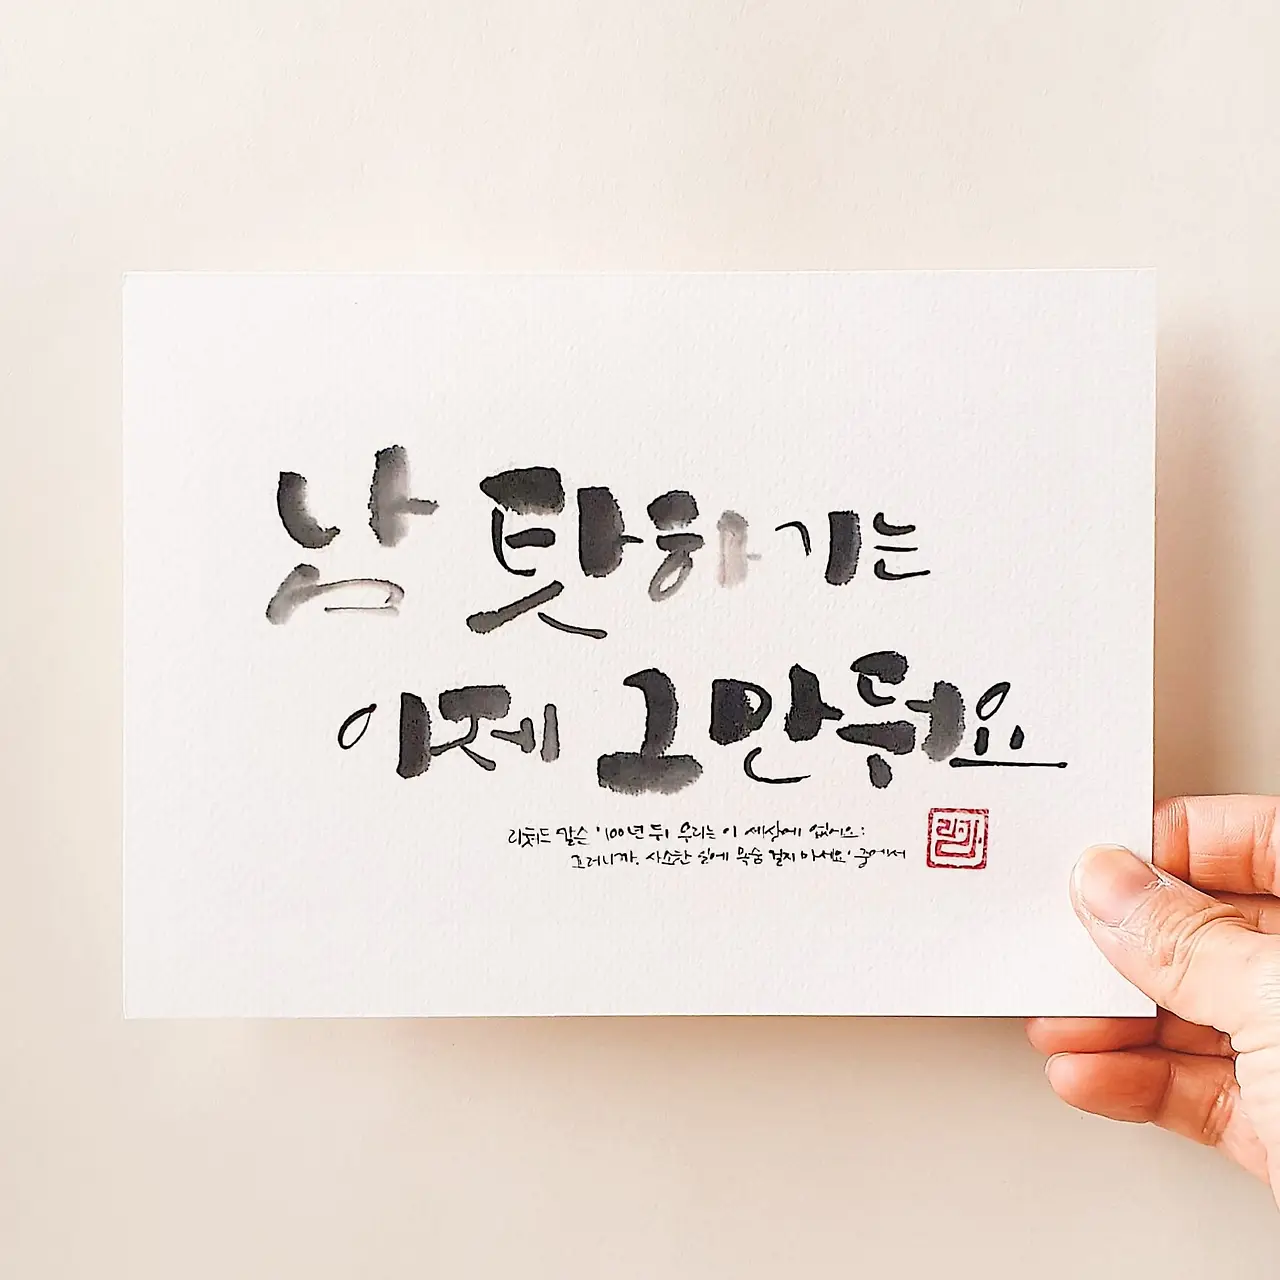 남 탓하기는
이제 그만둬요
리처드 칼슨 '100년 뒤 우리는 이 세상에 없어요:
그러니까, 사소한 일에 목숨 걸지 마세요' 중에서